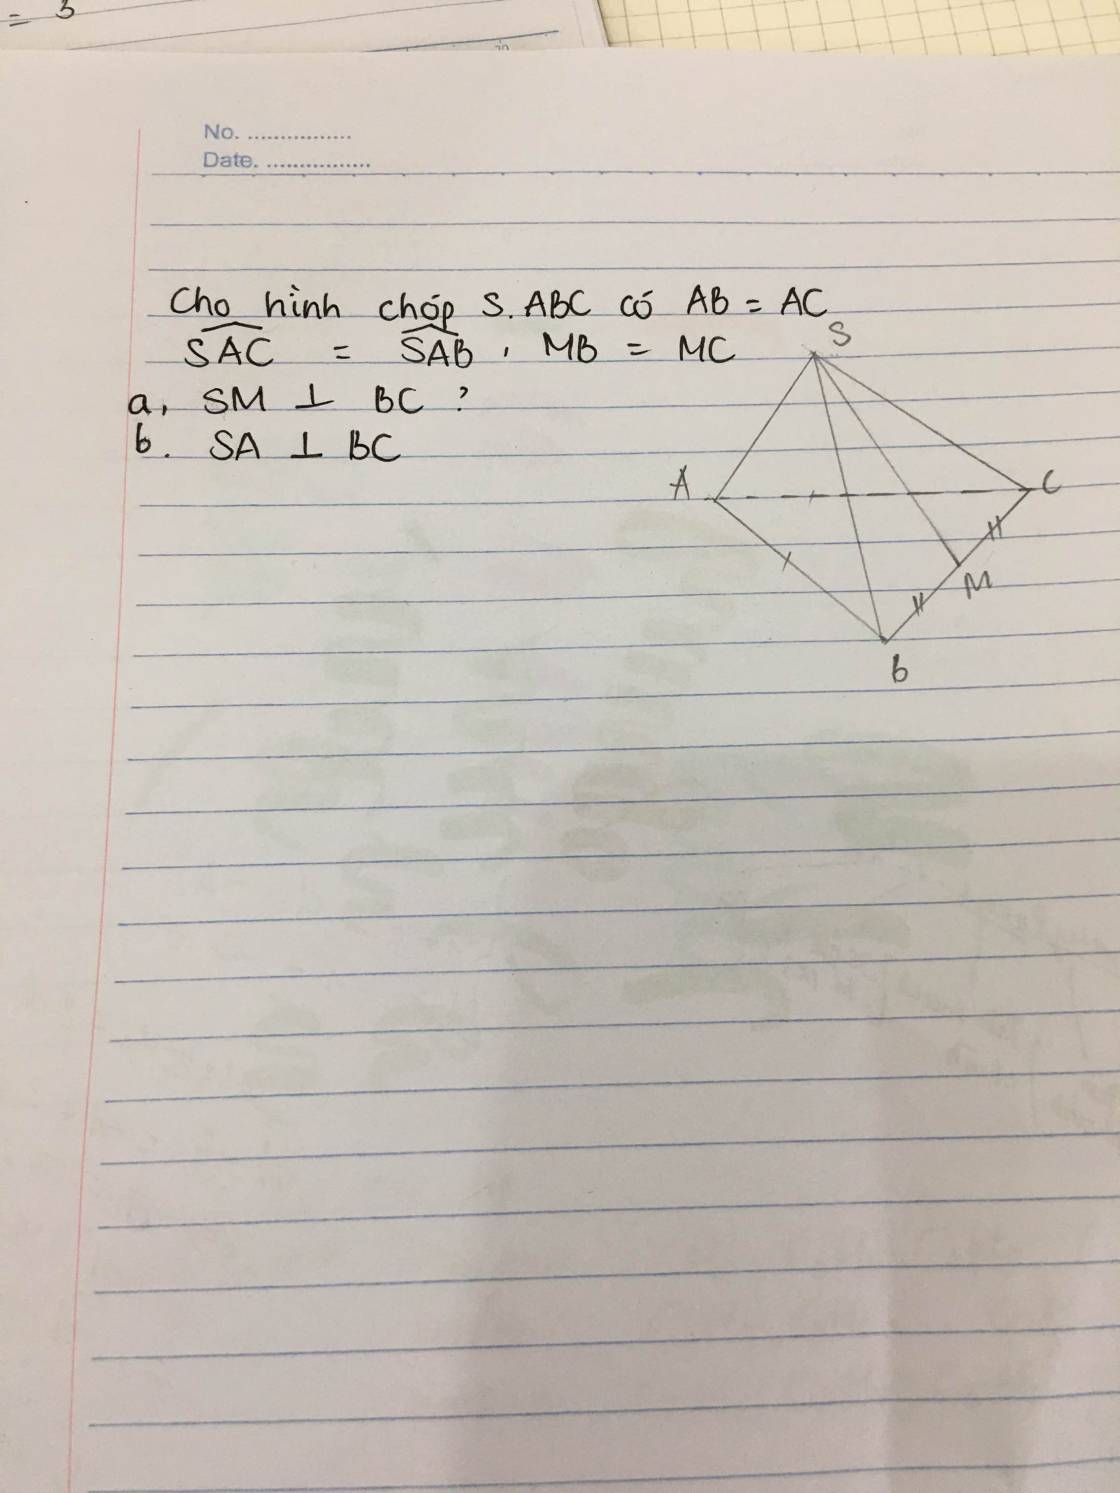 = 3
No. ................
Date. ................
Cho hình chóp S.ABC có AB = AC
SAC = SAB , MB = MC
a, SM ⊥ BC ?
b. SA ⊥ BC
S
A
C
M
B